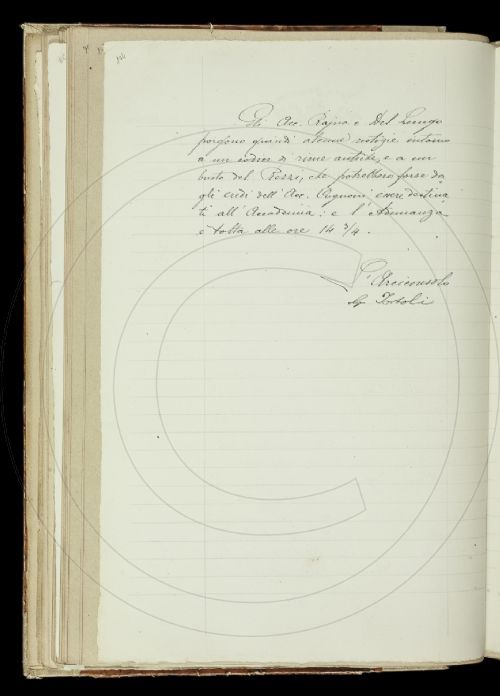 Gli Acc. Rajna e Del Lungo
porgono quindi alcune notizie intorno
a un codice di rime antiche, e a un
busto del Pozzi, che potrebbero forse da=
gli eredi dell'Acc. Cugnoni essere destina
ti all'Accademia: e l'Adunanza
è tolta alle ore 14 3/4.
L'Arciconsolo
G. Tortoli